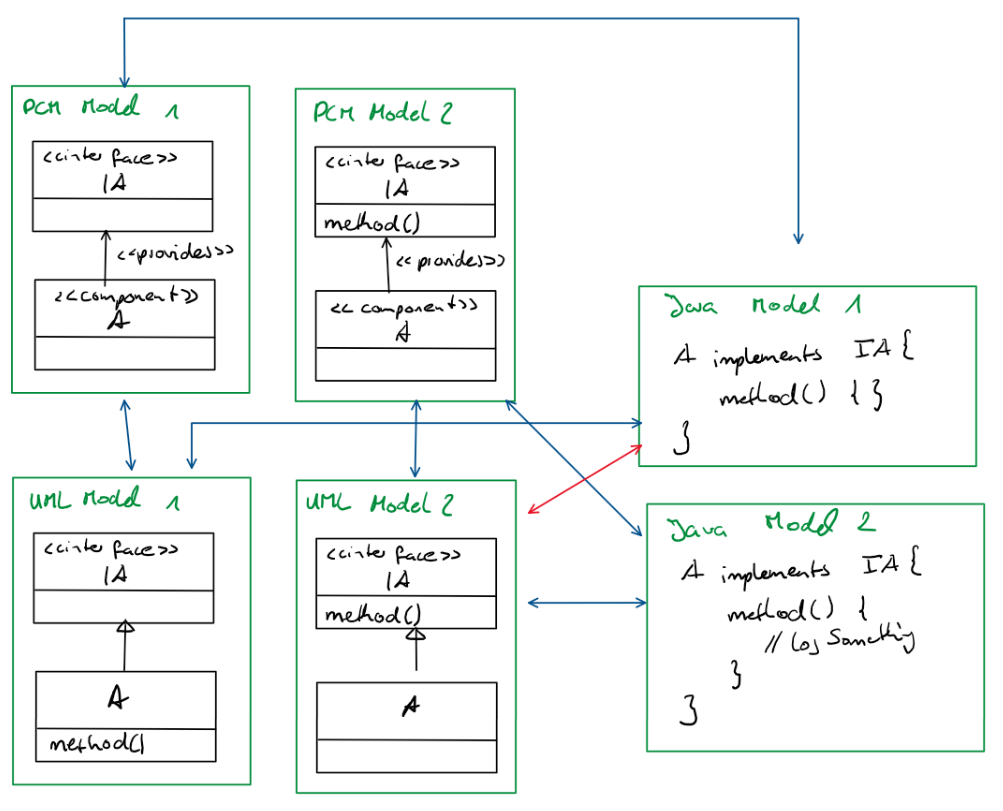 PCM Model 1
<<interface>>
IA
<<provides>>
<<component>>
A
PCM Model 2
<<interface>>
IA
method()
<<provides>>
<<component>>
A
Java Model 1
A implements IA {
method() { }
}
UML Model 1
<<interface>>
IA
A
method()
UML Model 2
<<interface>>
IA
method()
A
Java Model 2
A implements IA {
method() {
// Log Something
}
}